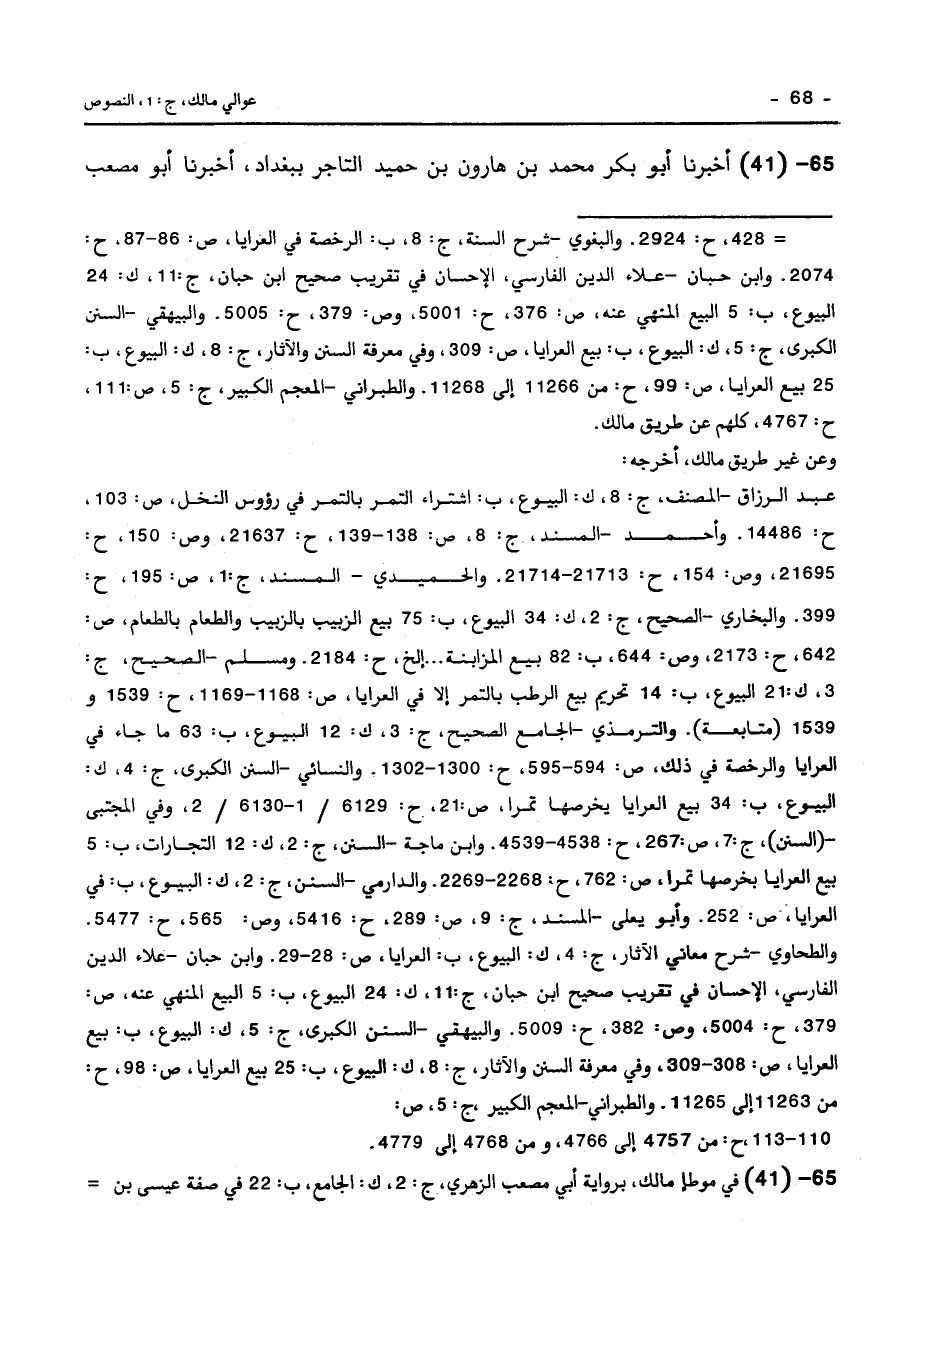 - 68 - عوالي مالك، ج: 1، النصوص
65- (41) أخبرنا أبو بكر محمد بن هارون بن حميد التاجر ببغداد، أخبرنا أبو مصعب
= 428، ح: 2924. والبغوي -شرح السنة، ج: 8، ب: الرخصة في العرايا، ص: 86-87، ح:
2074. وابن حبان -علاء الدين الفارسي، الإحسان في تقريب صحيح ابن حبان، ج:11، ك: 24
البيوع، ب: 5 البيع المنهي عنه، ص: 376، ح: 5001، وص: 379، ح: 5005. والبيهقي -السنن
الكبرى، ج: 5، ك: البيوع، ب: بيع العرايا، ص: 309، وفي معرفة السنن والآثار، ج: 8، ك: البيوع، ب:
25 بيع العرايا، ص: 99، ح: من 11266 إلى 11268. والطبراني -المعجم الكبير، ج: 5، ص:111،
ح: 4767، كلهم عن طريق مالك.
وعن غير طريق مالك، أخرجه:
عبد الرزاق -المصنف، ج: 8، ك: البيوع، ب: اشتراء التمر بالتمر في رؤوس النخل، ص: 103،
ح: 14486. وأحمد -المسند، ج: 8، ص: 138-139، ح: 21637، وص: 150، ح:
21695، وص: 154، ح: 21713-21714. والحميدي - المسند، ج:1، ص: 195، ح:
399. والبخاري -الصحيح، ج: 2، ك: 34 البيوع، ب: 75 بيع الزبيب بالزبيب والطعام بالطعام، ص:
642، ح: 2173، وص: 644، ب: 82 بيع المزابنة...إلخ، ح: 2184. ومسلم -الصحيح، ج:
3، ك:21 البيوع، ب: 14 تحريم بيع الرطب بالتمر إلا في العرايا، ص: 1168-1169، ح: 1539 و
1539 (متابعة). والترمذي -الجامع الصحيح، ج: 3، ك: 12 البيوع، ب: 63 ما جاء في
العرايا والرخصة في ذلك، ص: 594-595، ح: 1300-1302. والنسائي -السنن الكبرى، ج: 4، ك:
البيوع، ب: 34 بيع العرايا يخرصها تمرا، ص:21، ح: 6129 / 1-6130 / 2، وفي المجتبى
-(السنن)، ج:7، ص:267، ح: 4538-4539. وابن ماجة -السنن، ج: 2، ك: 12 التجارات، ب: 5
بيع العرايا بخرصها تمرا، ص: 762، ح: 2268-2269. والدارمي -السنن، ج: 2، ك: البيوع، ب: في
العرايا، ص: 252. وأبو يعلى -المسند، ج: 9، ص: 289، ح: 5416، وص: 565، ح: 5477.
والطحاوي -شرح معاني الآثار، ج: 4، ك: البيوع، ب: العرايا، ص: 28-29. وابن حبان -علاء الدين
الفارسي، الإحسان في تقريب صحيح ابن حبان، ج:11، ك: 24 البيوع، ب: 5 البيع المنهي عنه، ص:
379، ح: 5004، وص: 382، ح: 5009. والبيهقي -السنن الكبرى، ج: 5، ك: البيوع، ب: بيع
العرايا، ص: 308-309، وفي معرفة السنن والآثار، ج: 8، ك: البيوع، ب: 25 بيع العرايا، ص: 98، ح:
من 11263إلى 11265. والطبراني-المعجم الكبير ،ج: 5، ص:
110-113،ح: من 4757 إلى 4766، و من 4768 إلى 4779.
65- (41) في موطإ مالك، برواية أبي مصعب الزهري، ج: 2، ك: الجامع، ب: 22 في صفة عيسى بن =